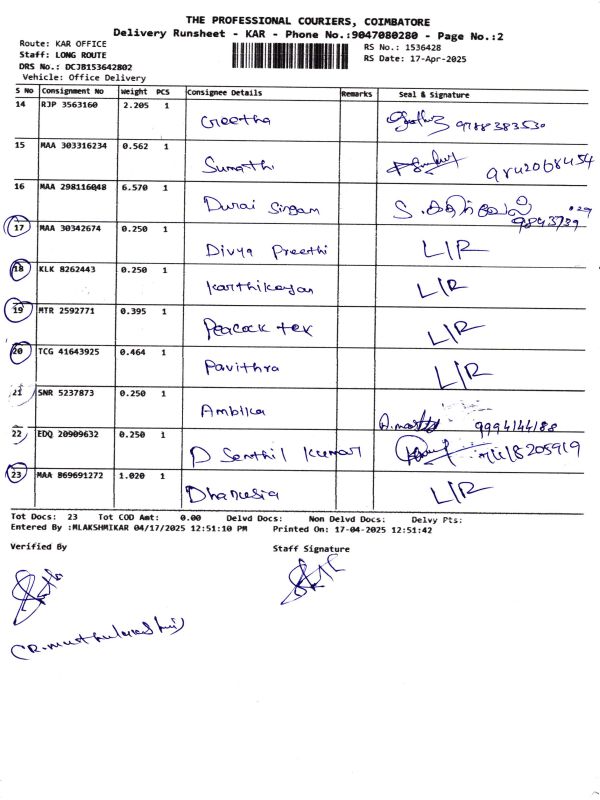 THE PROFESSIONAL COURIERS, COIMBATORE
Delivery Runsheet - KAR - Phone No.:9047080280 - Page No.:2
Route: KAR OFFICE
Staff: LONG ROUTE
DRS No.: DCJB153642802
Vehicle: Office Delivery
RS No.: 1536428
RS Date: 17-Apr-2025
S No Consignment No Weight PCS Consignee Details Remarks Seal & Signature
14 RJP 3563160 2.205 1 Geetha 9788383530
15 MAA 303316234 0.562 1 Sumathi 9842068454
16 MAA 298116048 6.570 1 Durai Singam
17 MAA 30342674 0.250 1 Divya Preethi L/R
18 KLK 8262443 0.250 1 Karthikeyan L/R
19 MTR 2592771 0.395 1 Peacock tex L/R
20 TCG 41643925 0.464 1 Pavithra L/R
21 SNR 5237873 0.250 1 Ambika 9994144188
22 EDQ 20909632 0.250 1 D Senthil Kumar
23 MAA 869691272 1.020 1 Dhanusia L/R
Tot Docs: 23 Tot COD Amt: 0.00 Delvd Docs: Non Delvd Docs: Delvy Pts:
Entered By :MLAKSHMIKAR 04/17/2025 12:51:10 PM Printed On: 17-04-2025 12:51:42
Verified By Staff Signature